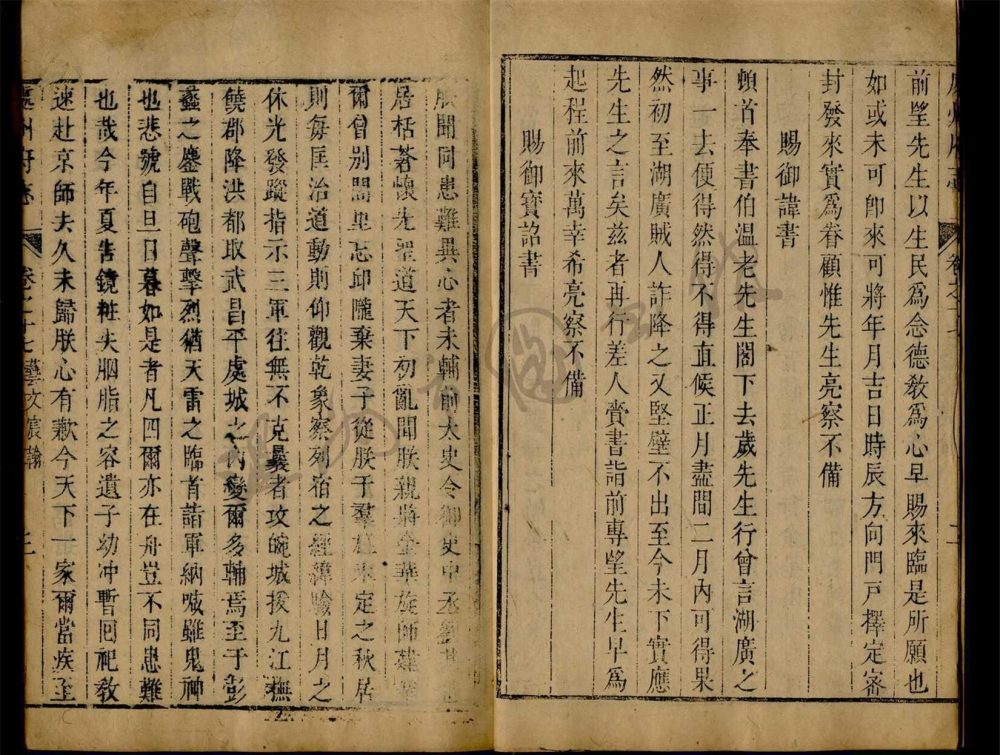 前望先生以生民為念德教為心早賜來臨是所願也
如或未可卽來可將年月吉日時辰方向門戶擇定審
封發來實為眷顧惟先生亮察不備
賜御諱書
頓首奉書伯溫老先生閣下去歲先生行曾言湖廣之
事一去便得然得不得直候正月盡間二月內可得果
然初至湖廣賊人詐降之又堅壁不出至今未下實應
先生之言矣茲者再行差人賫書詣前專望先生早為
起程前來萬幸希亮察不備
賜御寶詔書
朕聞同患難異心者未輔前太史令御史中丞劉
居栝蒼懷先聖道天下初亂聞朕親將金華旋師建
爾曾別閭里忘邱隴棄妻子從朕于羣雄未定之秋居
則每匡治道動則仰觀乾象察列宿之經緯驗日月之
休光發蹤指示三軍往無不克曩者攻皖城援九江撫
饒郡降洪都取武昌平處城之內變爾多輔焉至于彭
蠡之鏖戰砲聲擊烈猶天雷之臨首諸軍納喊雖鬼神
也悲號自旦日暮如是者凡四爾亦在舟豈不同患難
也哉今年夏告鏡粧失胭脂之容遺子幼冲暫囘祀教
速赴京師去久未歸朕心有歉今天下一家爾當疾至
處州府志
卷之十七藝文宸翰
三